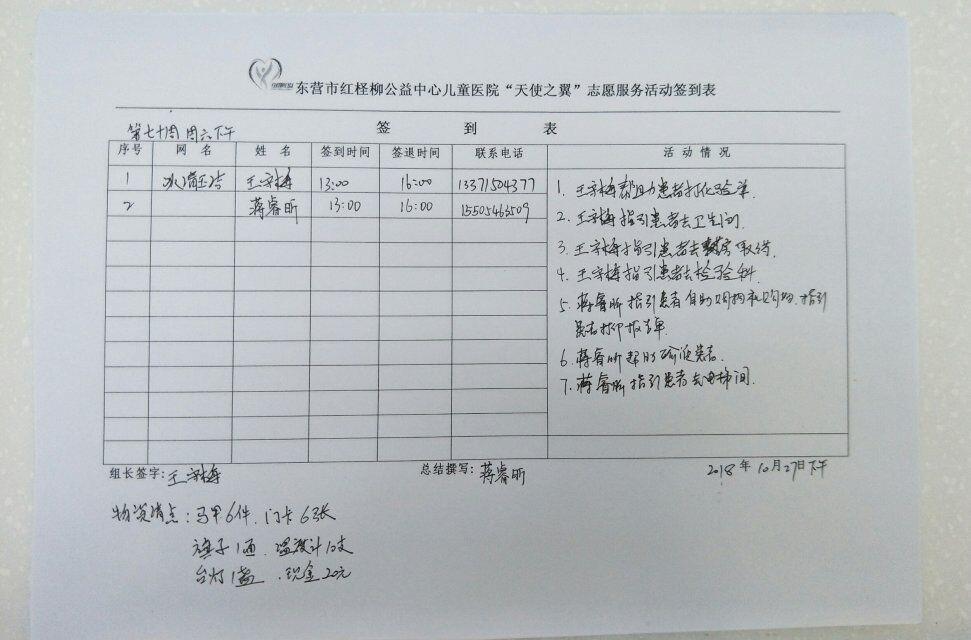 东营市红柽柳公益中心儿童医院“天使之翼”志愿服务活动签到表
签 到 表
第七十周 周六下午
序号 网 名 姓 名 签到时间 签退时间 联系电话 活 动 情 况
1 冰清玉洁 13:00 16:00 13371504377
2 蒋睿昕 13:00 16:00 15505463509
1. 帮助患者打化验单.
2. 指引患者去卫生间.
3. 指引患者去药房取药.
4. 指引患者去检验科.
5. 蒋睿昕指引患者自助购物机购物.指引
患者打印报告单.
6. 蒋睿昕患者.
7. 蒋睿昕指引患者去电梯间.
组长签字: 总结撰写:蒋睿昕 2018年10月27日下午
物资清点:马甲6件.门卡6张
旗子1面.温度计10支
台灯1盏.现金20元